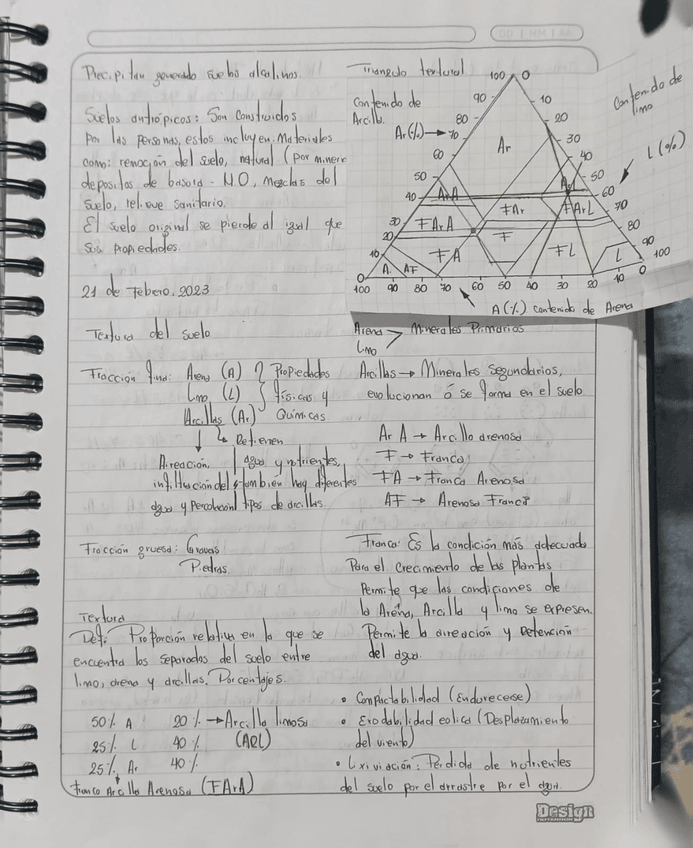 AA | MM | DD
Precipitan generando suelos alcalinos.
Suelos antrópicos: Son construidos
Por las personas, estos incluyen. Materiales
como: remoción del suelo, natural (por minere
depositos de basura - NO, Mezclas del
suelo, relleve sanitario.
El suelo original se pierde al igual que
sus propiedades.
21 de Febero. 2023
Textura del suelo
Fracción fina: Arena (A)
Limo (L)
Arcillas (Ar)
Propiedades
físicas y
Químicas
Retienen
agua y nutrientes,
tambien hay diferentes
tipos de arcillas.
Aireación,
infiltración del
agua y Percolación
Fracción gruesa: Gravas
Piedras.
Textura
Def: Proporción relativa en la que se
encuentra los separados del suelo entre
limo, arena y arcillas. Porcentajes.
50% A 20% → Arcillo limosa
25% L 40% (ArL)
25% Ar 40%
franco Arcillo Arenosa (FArA)
Triangulo textural
Contenido de
Arcilla.
Ar (%) →
Contenido de
limo
L (%)
100 0
90 10
80 20
70 30
60 40
50 50
40 60
30 70
20 80
10 90
0 100
Ar
ArA
ArL
FArA
FAr
FArL
FA
F
FL
L
A AF
100 90 80 70 60 50 40 30 20 10 0
A (%) contenido de Arena
Arena
Limo > Minerales Primarios
Arcillas → Minerales Segundarios,
evolucionan ó se forma en el suelo
Ar A → Arcillo arenosa
F → Franco
FA → Franco Arenosa
AF → Arenosa Franca
Franco: Es la condición más adecuada
Para el crecimiento de las plantas
Permite que las condiciones de
la Arena, Arcilla y limo se expresen.
Permite la aireación y Retención
del agua.
• Compactabilidad (Endurecerse)
• Erodabilidad eolica (Desplazamiento
del viento)
• Lixiviación: Perdida de nutrientes
del suelo por el arrastre por el agua.
Design